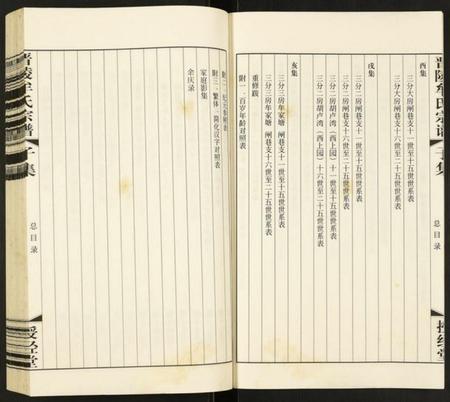 晋陵牟氏宗谱
子集
总目录
授经堂
酉集
三分大房闸巷支十一世至十五世世系表
三分大房闸巷支十六世至二十五世世系表
戌集
三分二房闸巷支十一世至十五世世系表
三分二房闸巷支十六世至二十五世世系表
三分二房胡卢湾（西上园）十一世至十五世世系表
三分二房胡卢湾（西上园）十六世至二十五世世系表
亥集
三分三房牟家塘 闸巷支十一世至十五世世系表
三分三房牟家塘 闸巷支十六世至二十五世世系表
重修跋
附一：百岁年龄对照表
附三：繁体一简化汉字对照表
家庭影集
余庆录
晋陵牟氏宗谱
集
总目录
授经堂